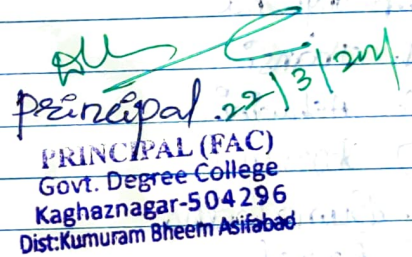 Principal 22/3/2021
PRINCIPAL (FAC)
Govt. Degree College
Kaghaznagar-504296
Dist:Kumuram Bheem Asifabad